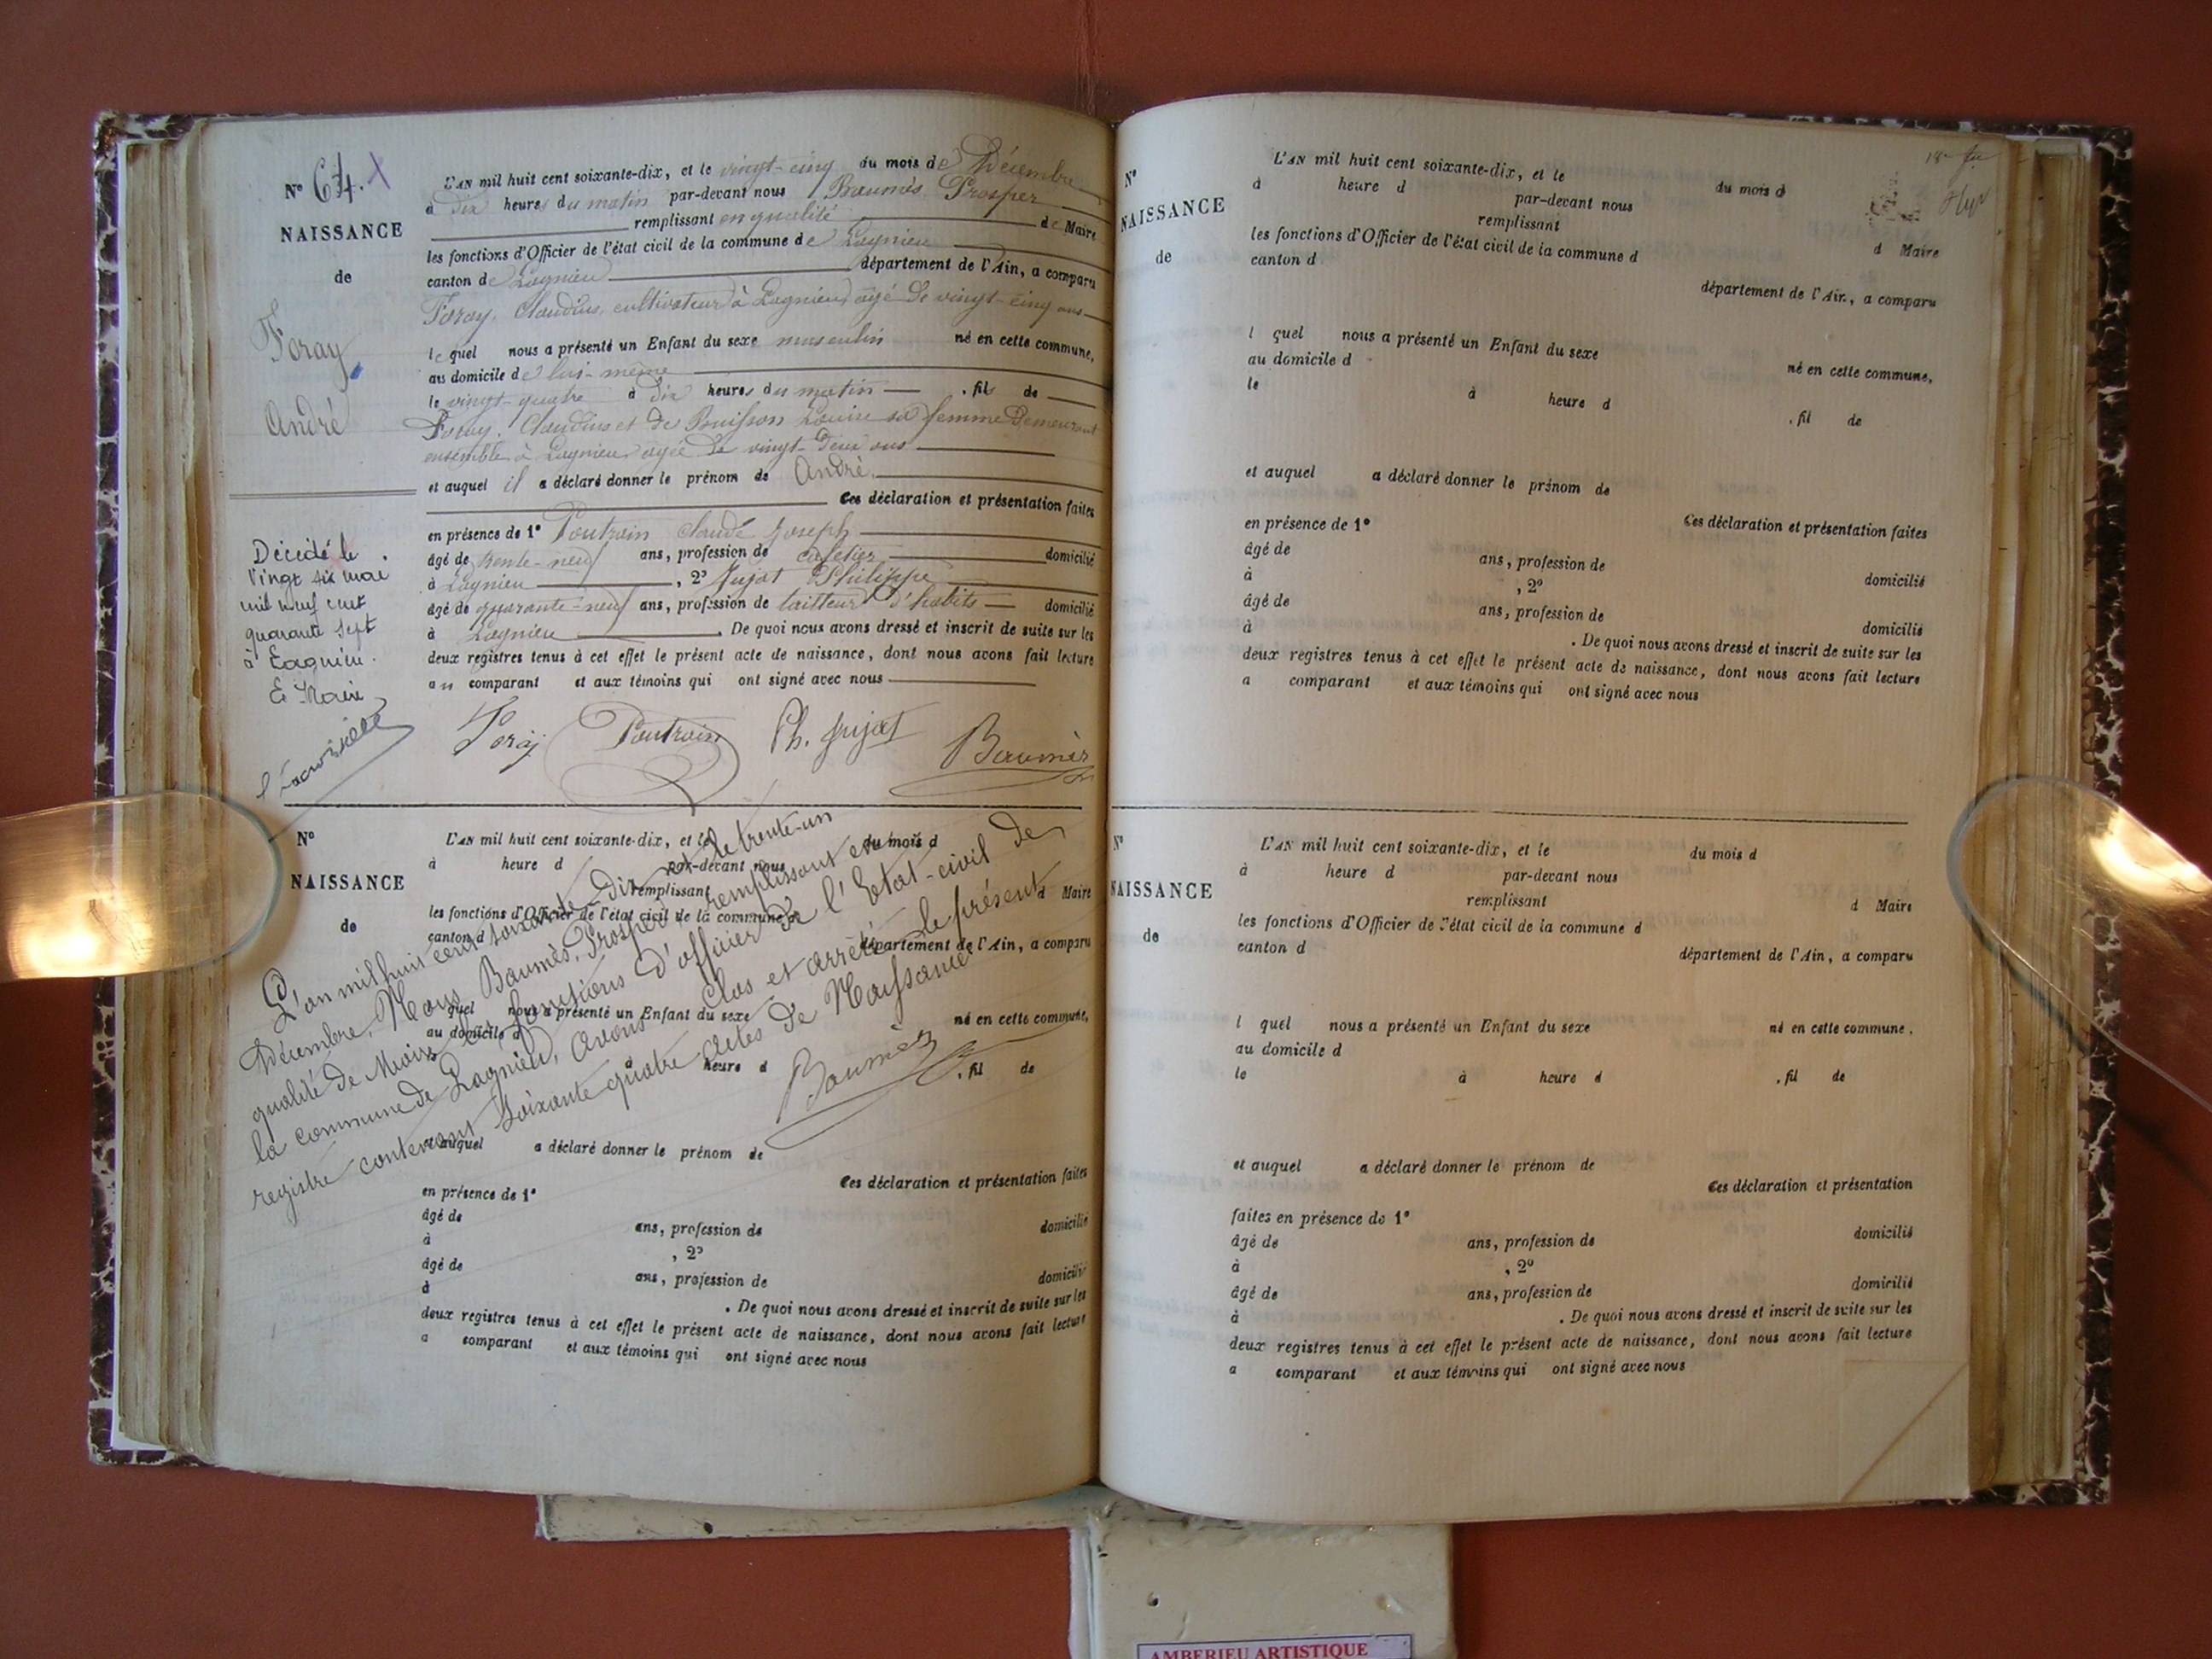 N° 64. X
NAISSANCE
de
Foray
André
L'AN mil huit cent soixante-dix, et le vingt-cinq du mois de Décembre
à dix heures du matin par-devant nous Baumès Prosper
remplissant en qualité de Maire
les fonctions d'Officier de l'état civil de la commune de Lagnieu
canton de Lagnieu département de l'Ain, a comparu
Foray, Claudius, cultivateur à Lagnieu, âgé de vingt-cinq ans
lequel nous a présenté un Enfant du sexe masculin né en cette commune,
au domicile de lui-même
le vingt-quatre à dix heures du matin . fils de
Foray, Claudius et de Buisson Louise sa femme Demeurant
ensemble à Lagnieu, agée de vingt-deux ans
et auquel il a déclaré donner le prénom de André.
Ces déclaration et présentation faites
en présence de 1° Poutrain Claude Joseph
âgé de trente-neuf ans, profession de cafetier domicilié
à Lagnieu , 2° Jujat Philippe
âgé de quarante-neuf ans, profession de tailleur d'habits domicilié
à Lagnieu . De quoi nous avons dressé et inscrit de suite sur les
deux registres tenus à cet effet le présent acte de naissance, dont nous avons fait lecture
au comparant et aux témoins qui ont signé avec nous
Décédé le
vingt six mai
mil neuf cent
quarante sept
à Lagnieu.
Le Maire
Foray Poutrain Ph. Jujat Baumès
N°
NAISSANCE
de
L'AN mil huit cent soixante-dix, et le du mois d
à heure d par-devant nous
remplissant d Maire
les fonctions d'Officier de l'état civil de la commune d
canton d département de l'Ain, a comparu
quel nous a présenté un Enfant du sexe né en cette commune,
au domicile d
à heure d . fil de
et auquel a déclaré donner le prénom de
Ces déclaration et présentation faites
en présence de 1°
âgé de ans, profession de domicilié
à , 2°
âgé de ans, profession de domicilié
à . De quoi nous avons dressé et inscrit de suite sur les
deux registres tenus à cet effet le présent acte de naissance, dont nous avons fait lecture
a comparant et aux témoins qui ont signé avec nous
L'an mil huit cent soixante-dix et le trente-un
Décembre, Nous Baumès, Prosper, remplissant en
qualité de Maire les fonctions d'officier de l'Etat-civil de
la commune de Lagnieu, avons clos et arrêté le présent
registre contenant soixante quatre actes de Naissance
Baumès
N°
NAISSANCE
de
L'AN mil huit cent soixante-dix, et le du mois d
à heure d par-devant nous
remplissant d Maire
les fonctions d'Officier de l'état civil de la commune d
canton d département de l'Ain, a comparu
l quel nous a présenté un Enfant du sexe né en cette commune,
au domicile d
le à heure d . fil de
et auquel a déclaré donner le prénom de
Ces déclaration et présentation faites
en présence de 1°
âgé de ans, profession de domicilié
à , 2°
âgé de ans, profession de domicilié
à . De quoi nous avons dressé et inscrit de suite sur les
deux registres tenus à cet effet le présent acte de naissance, dont nous avons fait lecture
a comparant et aux témoins qui ont signé avec nous
N°
NAISSANCE
de
L'AN mil huit cent soixante-dix, et le du mois d
à heure d par-devant nous
remplissant d Maire
les fonctions d'Officier de l'état civil de la commune d
canton d département de l'Ain, a comparu
l quel nous a présenté un Enfant du sexe né en cette commune.
au domicile d
le à heure d . fil de
et auquel a déclaré donner le prénom de
Ces déclaration et présentation
faites en présence de 1°
âgé de ans, profession de domicilié
à , 2°
âgé de ans, profession de domicilié
à . De quoi nous avons dressé et inscrit de suite sur les
deux registres tenus à cet effet le présent acte de naissance, dont nous avons fait lecture
a comparant et aux témoins qui ont signé avec nous
AMBERIEU ARTISTIQUE